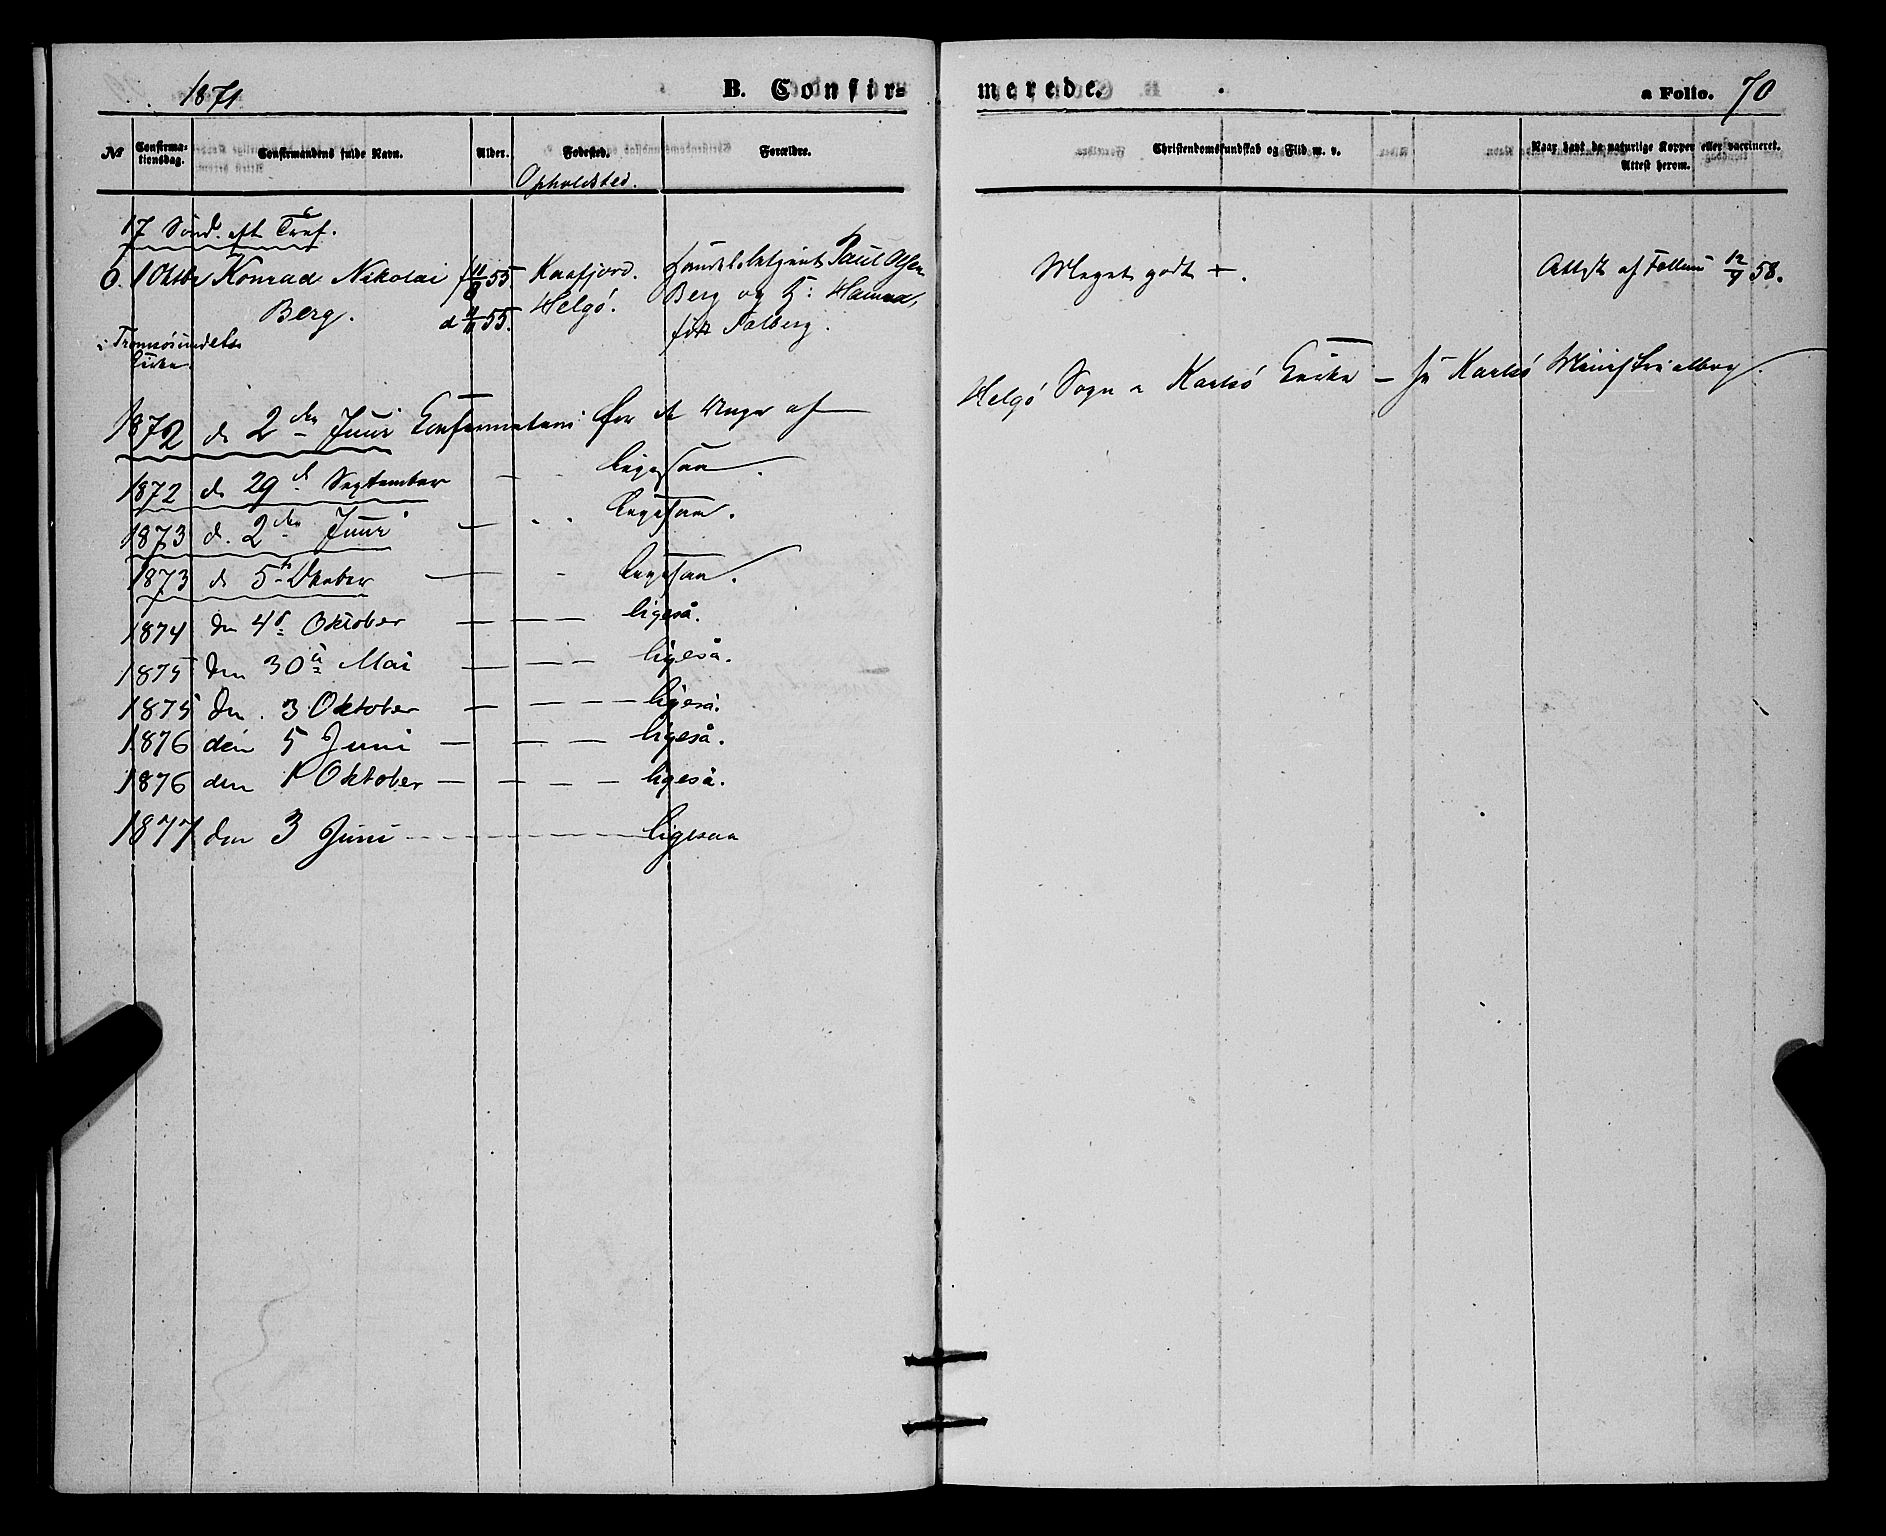 1871
B. Confir=
merede.
a Folio. 70
№ Confirma-tionsdag. Confirmandens fulde Navn. Alder. Fødested. Forældre. Christendomskundskab og Flid m. v. Naar havt de naturlige Kopper eller vaccineret. Attest herom.
Opholdsted.
17 Sønd. eft Tref.
6. 1 Oktbr Konrad Nikolai f 11/8 55 Kaafjord. Handelsbetjent Paul Olsen Meget godt +. Attest af Fellum 12/9 58.
Berg. d 4/11 55. Helgö. Berg og H: Hanna,
født Falberg.
i Tromsösundets
Kirke.
1872 d 2den Juni Confirmation for de Unge af Helgö Sogn i Karlsö Kirke – Se Karlsö Ministerialbog.
1872 d 29d September – - ligesaa.
1873 d. 2den Juni – - . ligesaa.
1873 d 5t Oktober — - ligesaa.
1874 den 4d Oktober – – – ligeså.
1875 den 30te Mai – – – ligeså.
1875 Den 3 Oktober – – – – ligeså.
1876 den 5 Juni – – – – ligeså.
1876 den 1 Oktober – – – – ligeså.
1877 den 3 Juni - - - - - - ligesaa